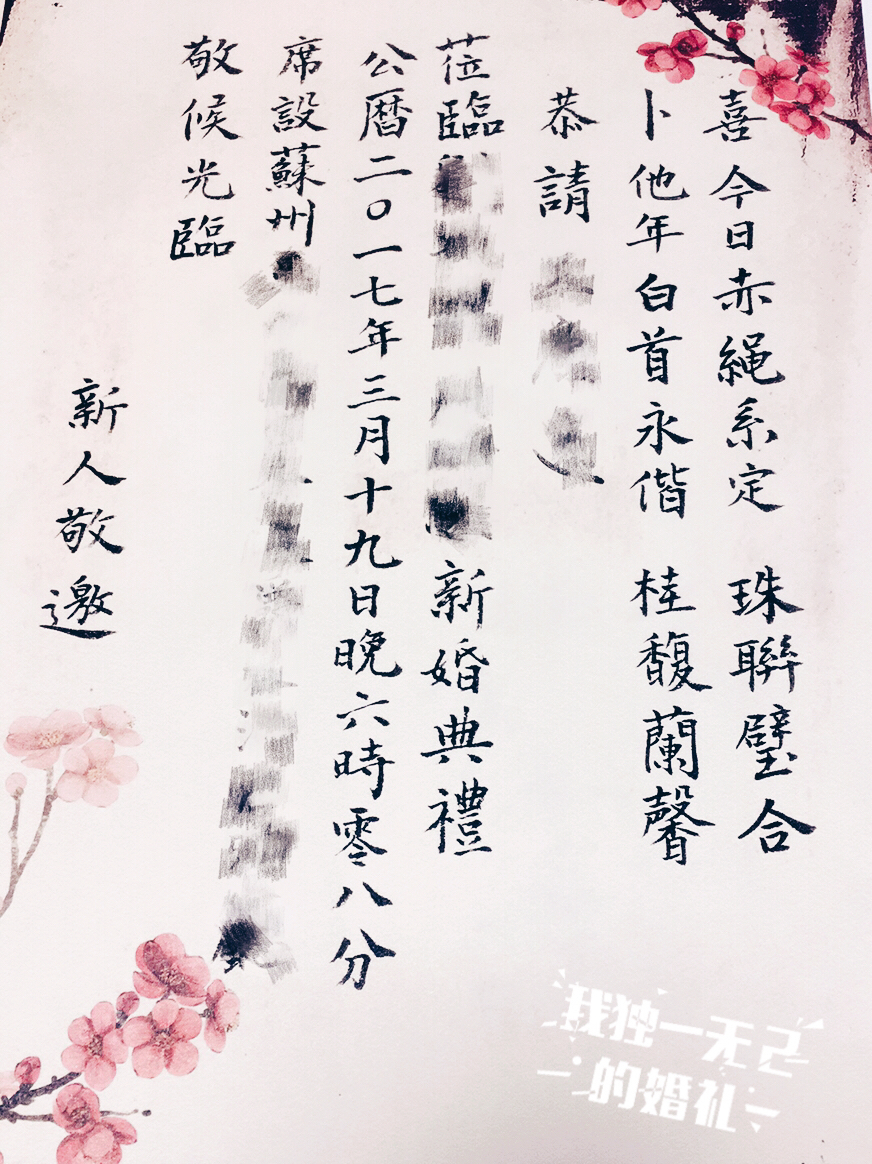 喜今日赤繩系定 珠聯璧合
卜他年白首永偕 桂馥蘭馨
恭請
莅臨 新婚典禮
公曆二〇一七年三月十九日晚六時零八分
席設蘇州
敬候光臨
新人敬邀
我独一无己
的婚礼